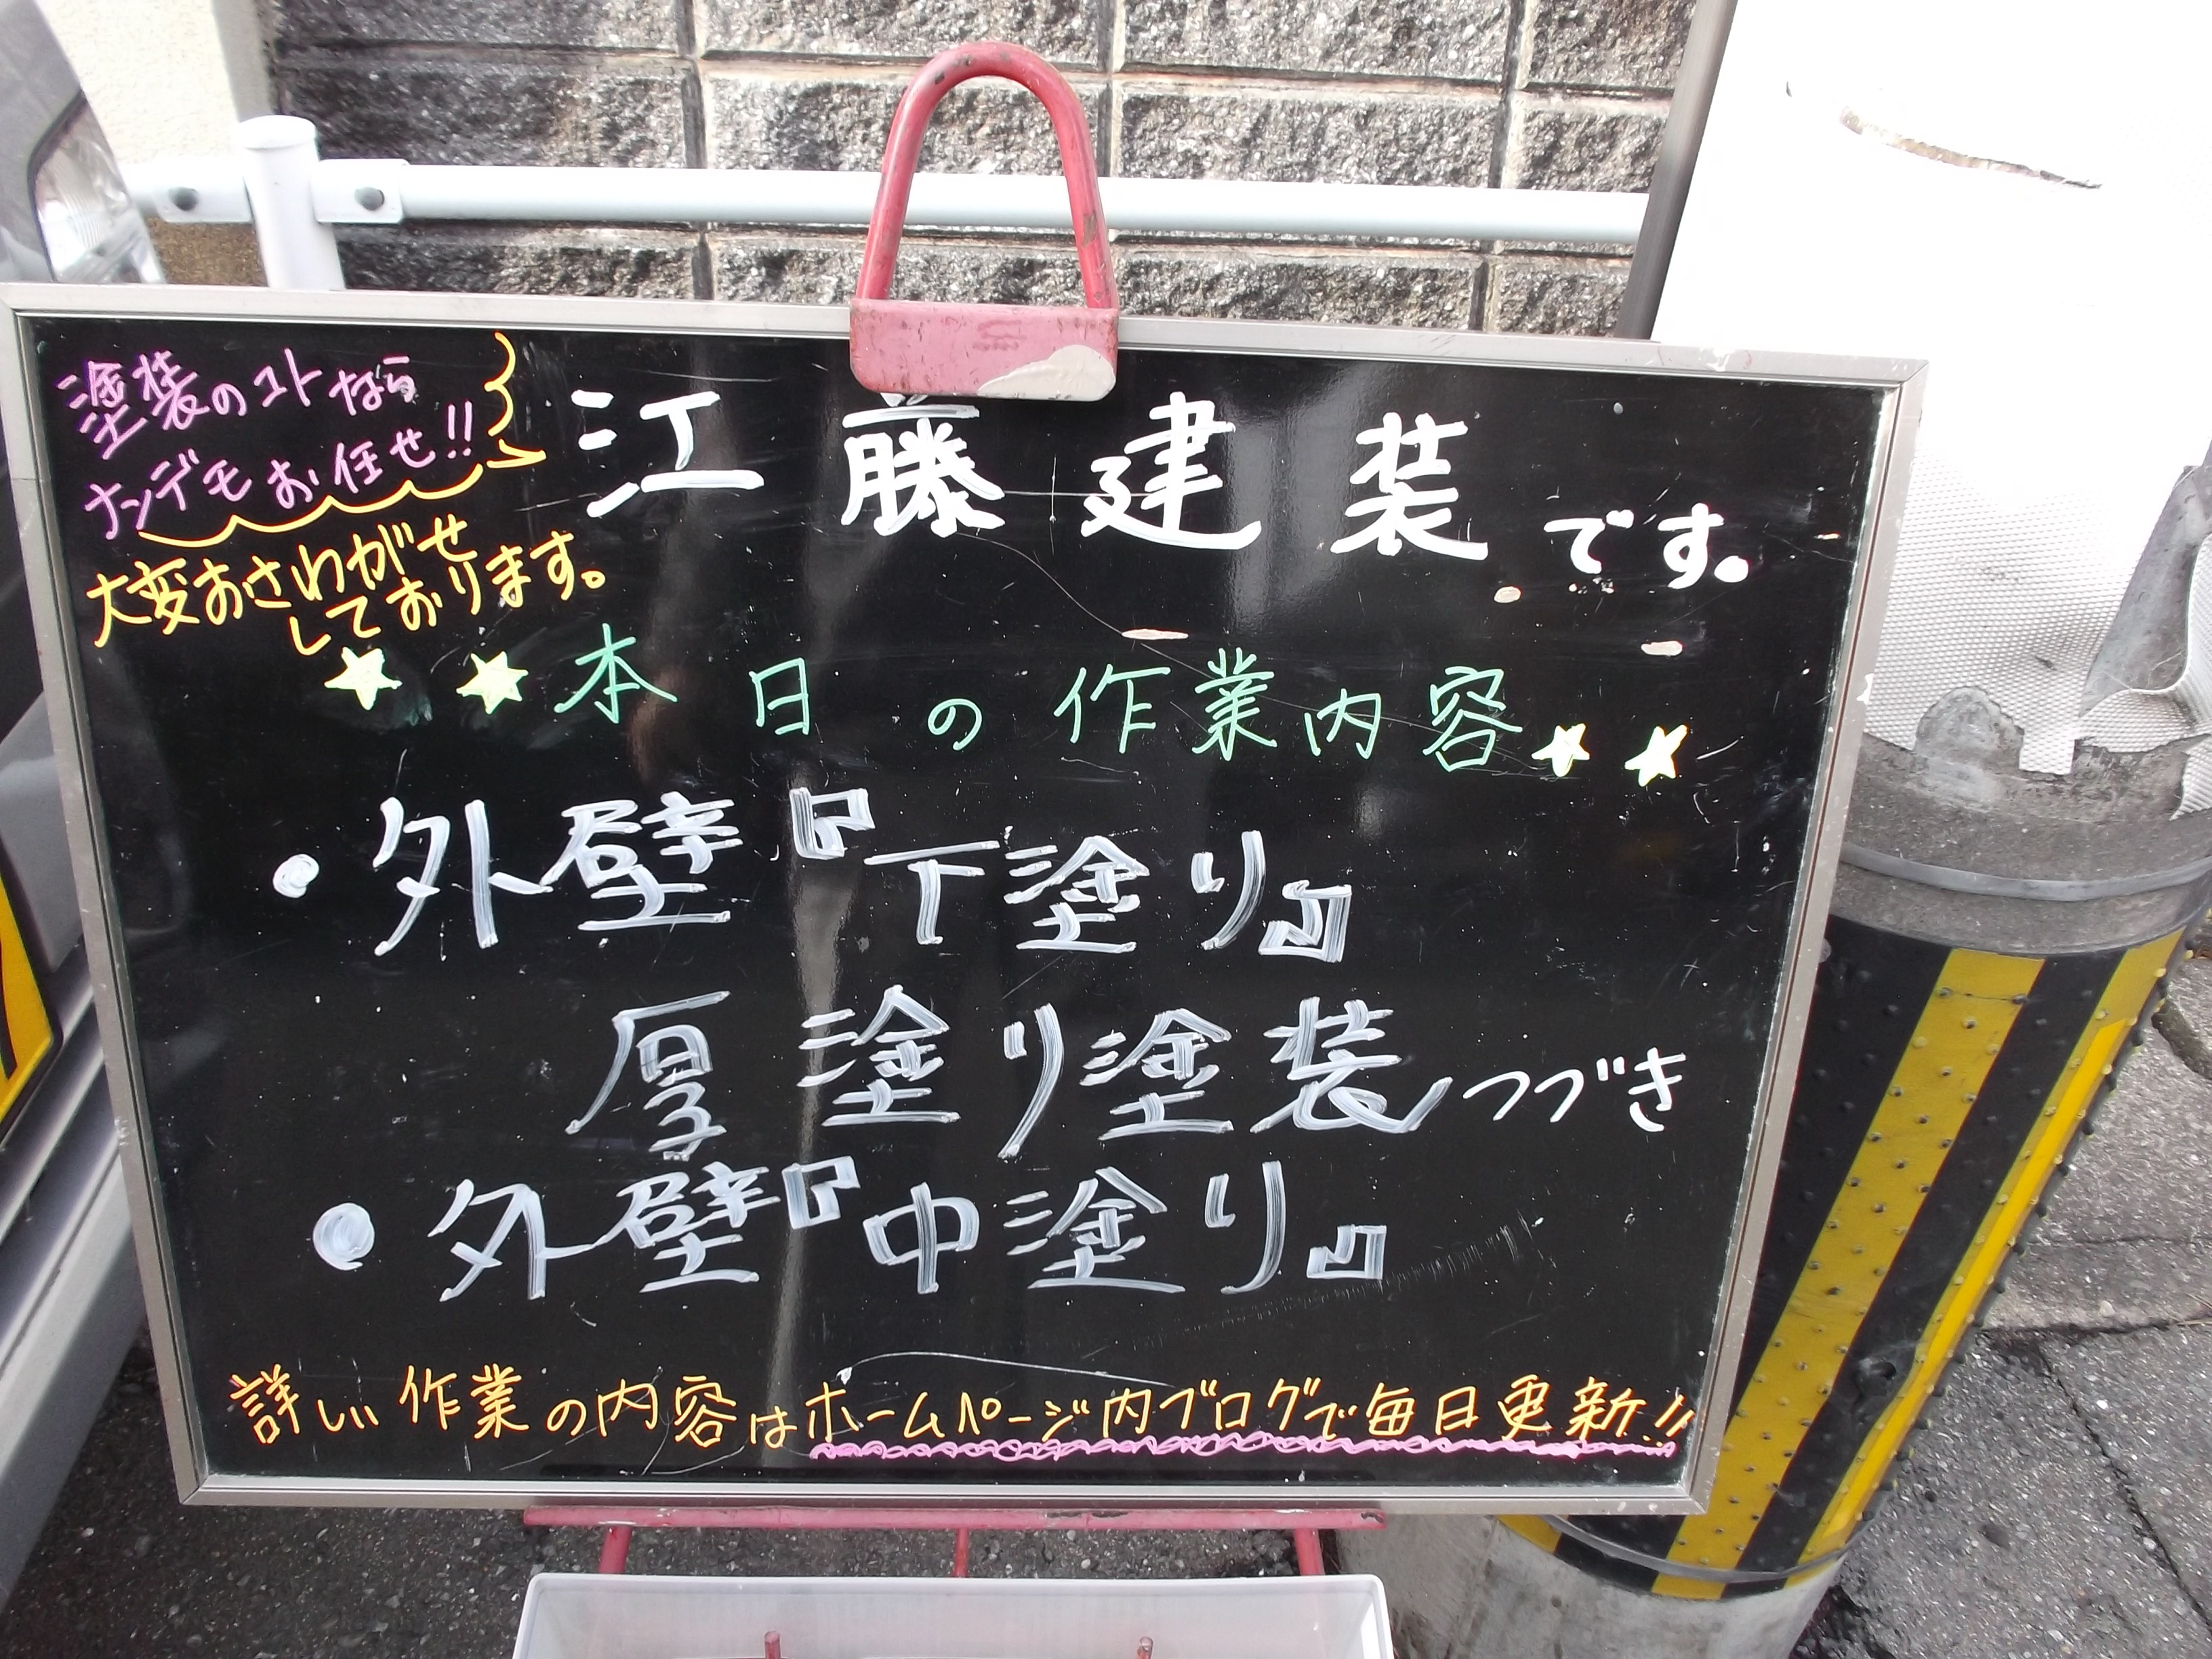 塗装のコトなら
ナンデモお任せ!!
江藤建装です。
大変おさわがせ
しております。
★★本日の作業内容★★
・外壁『下塗り』
厚塗り塗装つづき
・外壁『中塗り』
詳しい作業の内容はホームページ内ブログで毎日更新!!